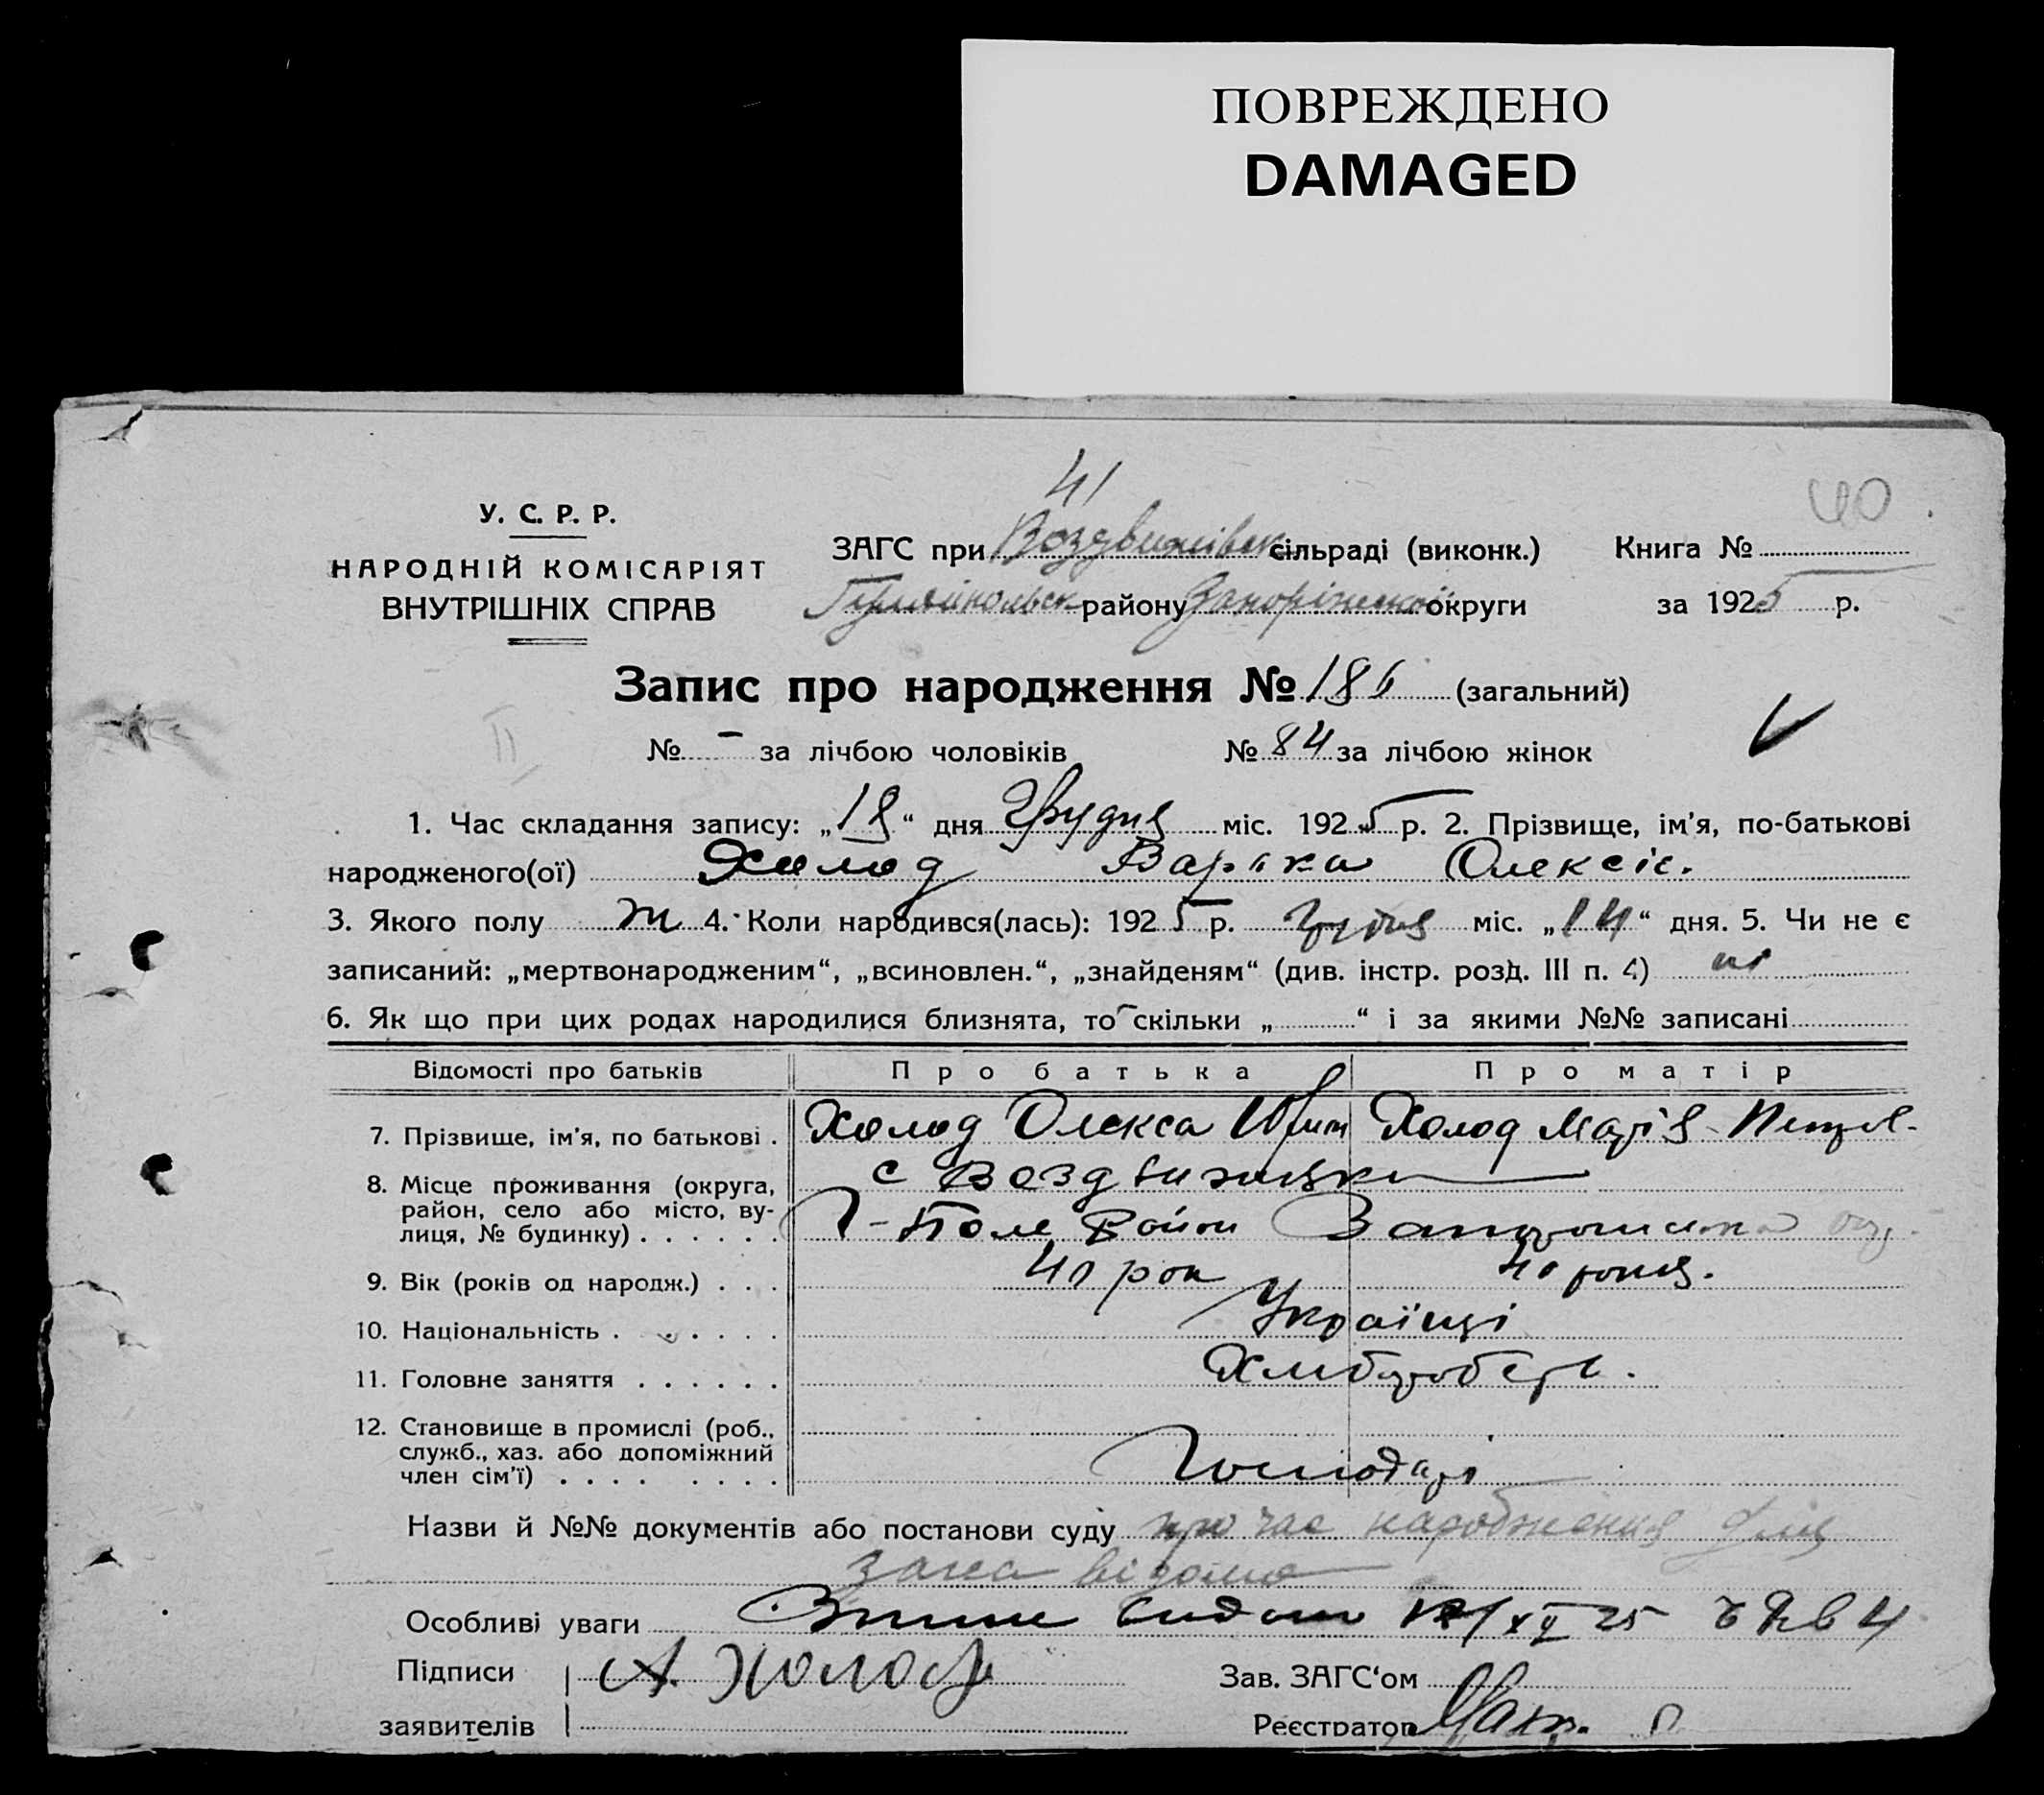 ПОВРЕЖДЕНО
DAMAGED
41
40
У. С. Р. Р.
НАРОДНІЙ КОМІСАРІЯТ
ВНУТРІШНІХ СПРАВ
ЗАГС при Воздвижівск сільраді (виконк.) Книга №
Гуляйпольск району Запоріжської округи за 1925 р.
Запис про народження № 186 (загальний)
№ - за лічбою чоловіків № 84 за лічбою жінок
1. Час складання запису: „18“ дня Грудня міс. 1925 р. 2. Прізвище, ім'я, по-батькові
народженого(ої) Холод Варька Олексіє.
3. Якого полу ж 4. Коли народився(лась): 1925 р. грудня міс. „14“ дня. 5. Чи не є
записаний: „мертвонародженим“, „всиновлен.“, „знайденям“ (див. інстр. розд. III п. 4) ні
6. Як що при цих родах народилися близнята, то скільки „ “ і за якими №№ записані
Відомості про батьків Про батька Про матір
7. Прізвище, ім'я, по батькові . Холод Олекса Юхим Холод Марія
8. Місце проживання (округа,
район, село або місто, ву-
лиця, № будинку) . . . . . .
с Воздвижівки
Г-Поле Район Запорожська
9. Вік (років од народж.) . . . рок
10. Національність . . . . . . Українці
11. Головне заняття . . . . . . Хлібороб
12. Становище в промислі (роб.,
служб., хаз. або допоміжний
член сім'ї) . . . . . . . .
Господарі
Назви й №№ документів або постанови суду про час народження
загса відомо
Особливі уваги видано XII 25
Підписи А. Холод Зав. ЗАГС'ом
заявителів Реєстратор